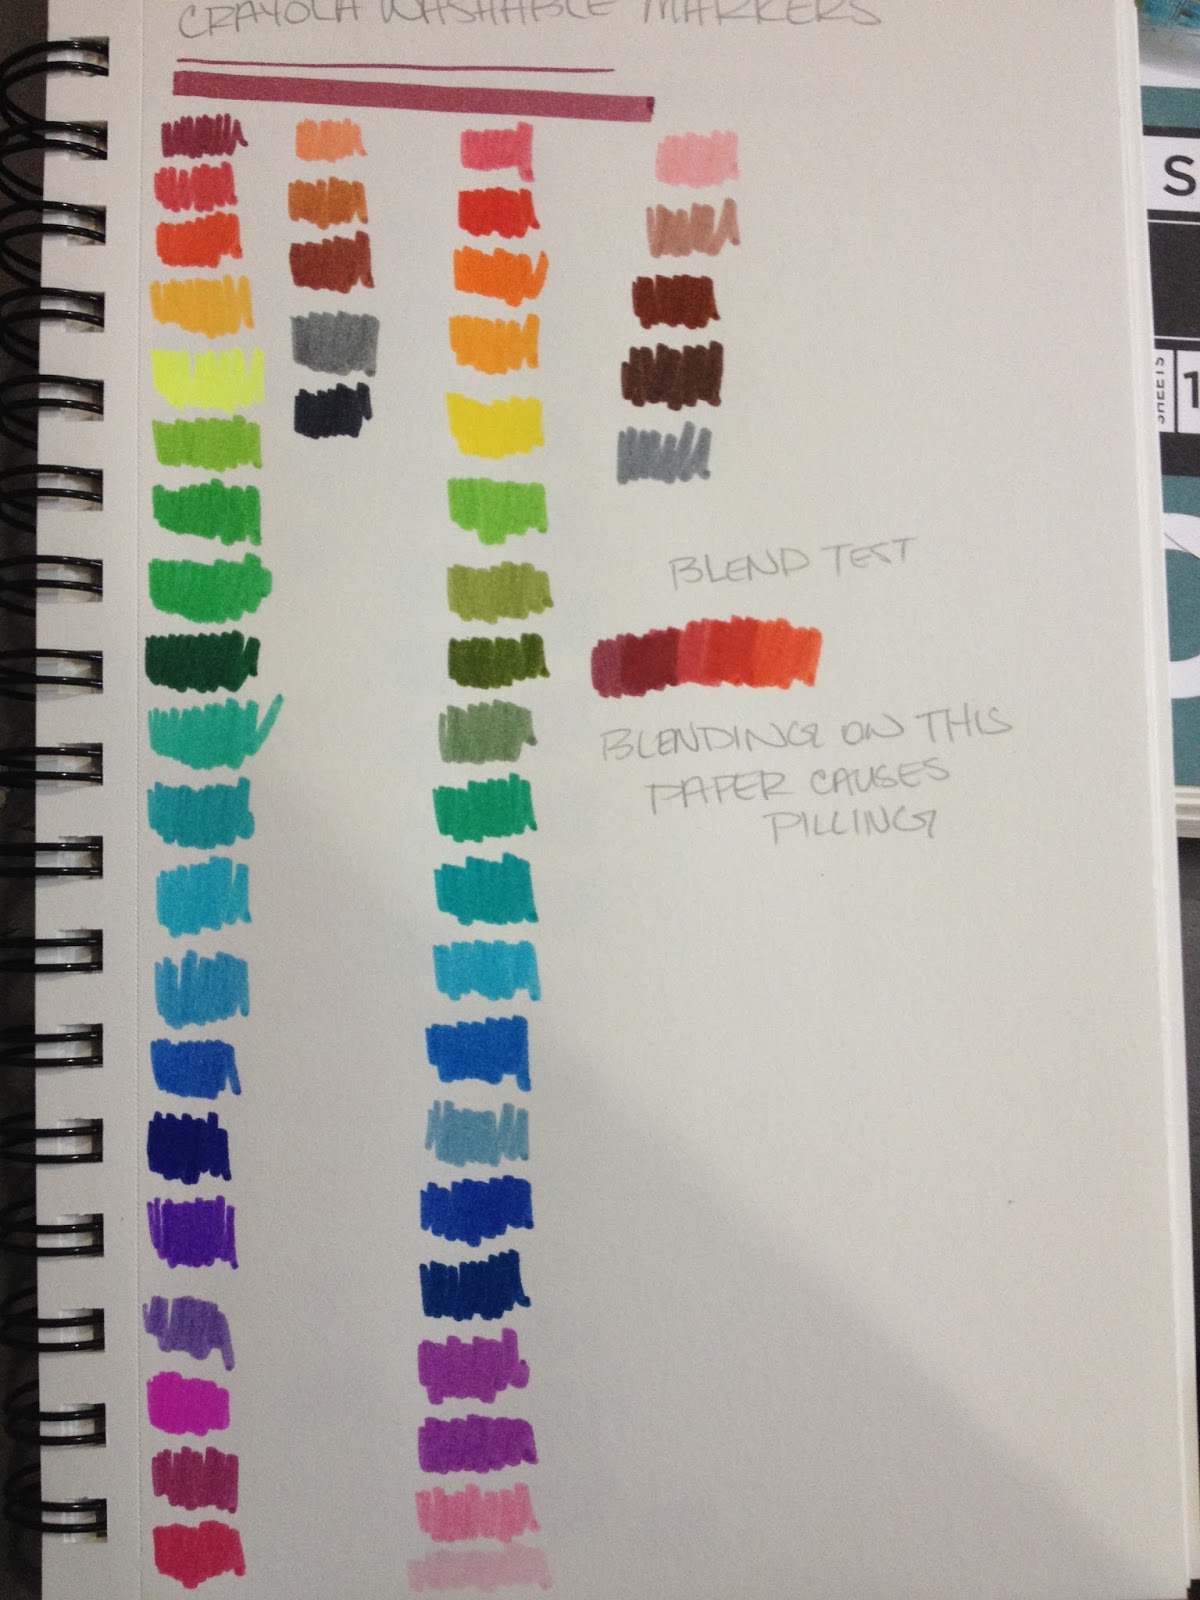 CRAYOLA WASHABLE MARKERS
S
SHEETS
1
BLEND TEST
BLENDING ON THIS
PAPER CAUSES
PILLING